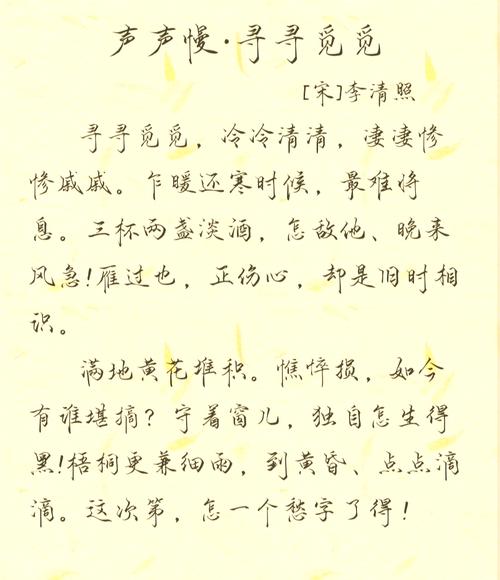 声声慢·寻寻觅觅
[宋]李清照
寻寻觅觅，冷冷清清，凄凄惨
惨戚戚。乍暖还寒时候，最难将
息。三杯两盏淡酒，怎敌他、晚来
风急!雁过也，正伤心，却是旧时相
识。
满地黄花堆积。憔悴损，如今
有谁堪摘？守着窗儿，独自怎生得
黑!梧桐更兼细雨，到黄昏、点点滴
滴。这次第，怎一个愁字了得！